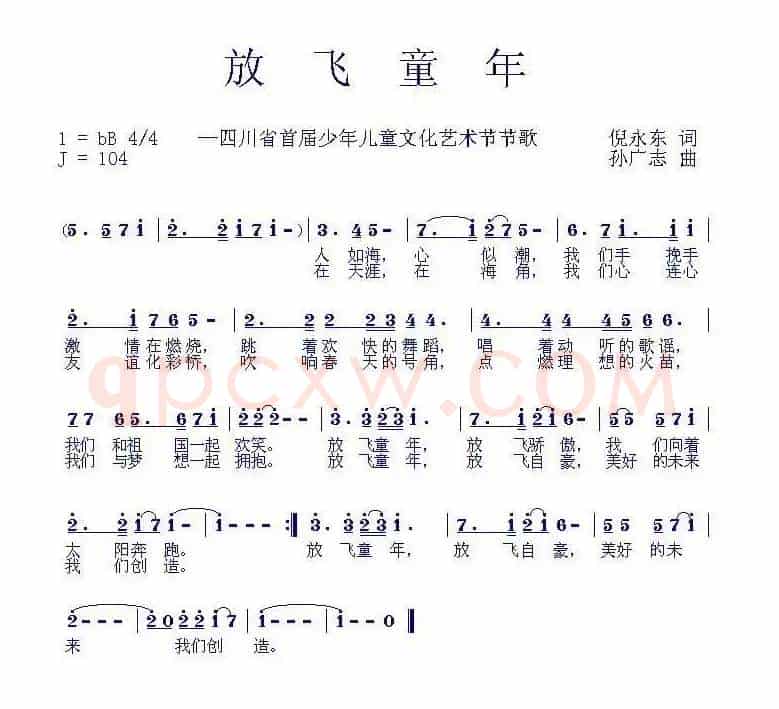 放飞童年
1 = bB 4/4 —四川省首届少年儿童文化艺术节节歌 倪永东 词
J = 104 孙广志 曲
(5. 5 7 i | 2. 2 i 7 i - ) | 3. 4 5 - | 7. i 2 7 5 - | 6. 7 i. i 7 |
人 如海, 心 似 潮, 我 们手 挽手
在 天涯, 在 海 角, 我 们心 连心
2. i 7 6 5 - | 2. 2 2 2 3 4 | 4. 4 4 5 6 6. | 
激 情在燃烧, 跳 着欢 快的舞蹈, 唱 着动 听的歌谣,
友 谊化彩桥, 吹 响春 天的号角, 点 燃理 想的火苗,
qpcxw.COM
7 7 6 5. 5 6 7 i | 2 2 2 - - | 3. 3 2 3 i. | 7. i 2 i 6 - | 5 5 5 7 i |
我们 和祖 国一起 欢笑。 放 飞童 年, 放 飞骄 傲, 我 们向着
我们 与梦 想一起 拥抱。 放 飞童 年, 放 飞自 豪, 美好 的未来
2. 2 i 7 i - | i - - - :‖ 3. 3 2 3 i. | 7. i 2 i 6 - | 5 5 5 7 i |
太 阳奔 跑。 放 飞童 年, 放 飞自 豪, 美好 的未
我 们创 造。
2 - - - | 2 0 2 2 i 7 | i - - - | i - - 0 ‖
来 我们创 造。